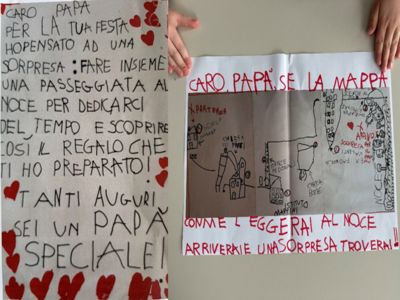 CARO PAPÀ
PER LA TUA FESTA
HO PENSATO AD UNA
SORPRESA: FARE INSIEME
UNA PASSEGGIATA AL
NOCE PER DEDICARCI
DEL TEMPO E SCOPRIRE
COSÌ IL REGALO CHE
TI HO PREPARATO!
TANTI AUGURI
SEI UN PAPÀ
SPECIALE!
CARO PAPÀ SE LA MAPPA
PARTENZA
CHIESA
ARRIVO
SORPRESA
NOCE
ISTITUTO
ARRIVERAI E UNA SORPRESA TROVERAI!!